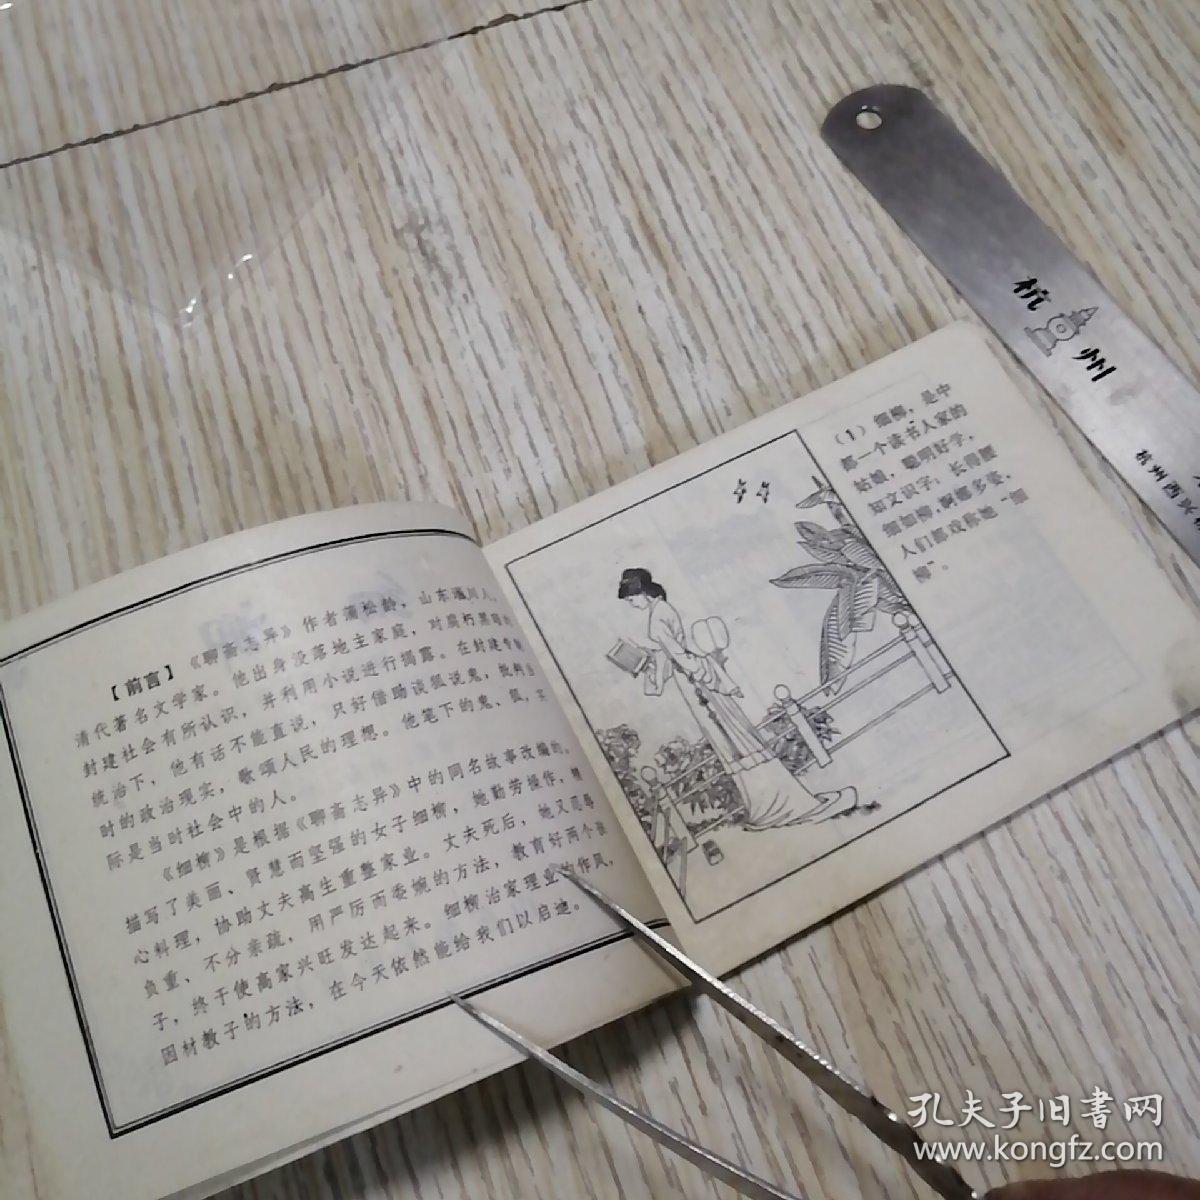 【前言】《聊斋志异》作者蒲松龄，山东淄川人，
清代著名文学家。他出身没落地主家庭，对腐朽黑暗的
封建社会有所认识，并利用小说进行揭露。在封建专制
统治下，他有话不能直说，只好借助谈狐说鬼，批判当
时的政治现实，歌颂人民的理想。他笔下的鬼、狐，实
际是当时社会中的人。
《细柳》是根据《聊斋志异》中的同名故事改编的。
描写了美丽、贤慧而坚强的女子细柳，她勤劳操作，精
心料理，协助丈夫高生重整家业。丈夫死后，她又忍辱
负重、不分亲疏，用严厉而委婉的方法，教育好两个孩
子，终于使高家兴旺发达起来。细柳治家理业的作风，
因材教子的方法，在今天依然能给我们以启迪。
（1）细柳，是中
都一个读书人家的
姑娘，聪明好学，
知文识字；长得腰
细如柳，婀娜多姿，
人们都戏称她“细
柳”。
杭州
杭州西兴
孔夫子旧書网
www.kongfz.com